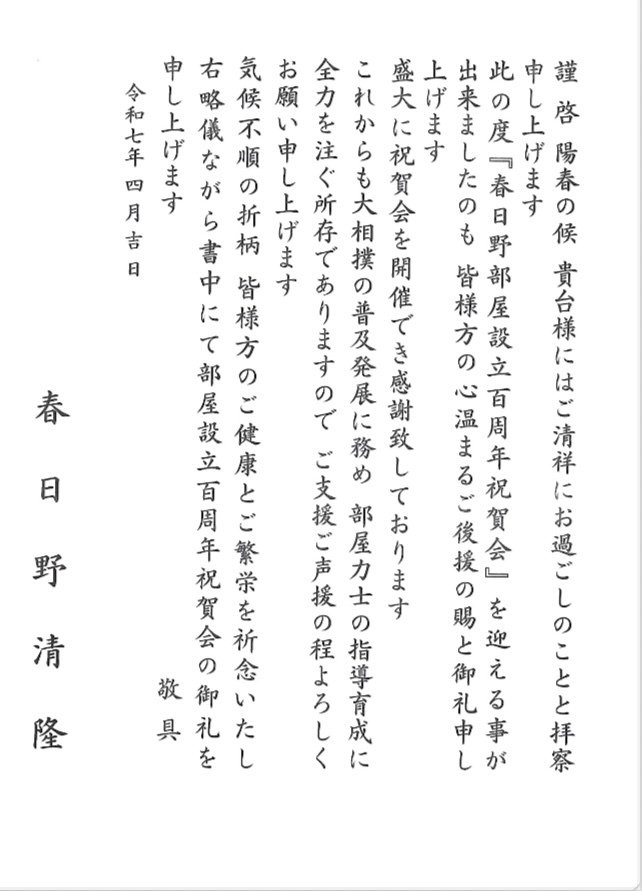 謹啓 陽春の候 貴台様にはご清祥にお過ごしのことと拝察
申し上げます
此の度『春日野部屋設立百周年祝賀会』を迎える事が
出来ましたのも 皆様方の心温まるご後援の賜と御礼申し
上げます
盛大に祝賀会を開催でき感謝致しております
これからも大相撲の普及発展に務め 部屋力士の指導育成に
全力を注ぐ所存でありますので ご支援ご声援の程よろしく
お願い申し上げます
気候不順の折柄 皆様方のご健康とご繁栄を祈念いたし
右略儀ながら書中にて部屋設立百周年祝賀会の御礼を
申し上げます
敬具
令和七年四月吉日
春日野清隆